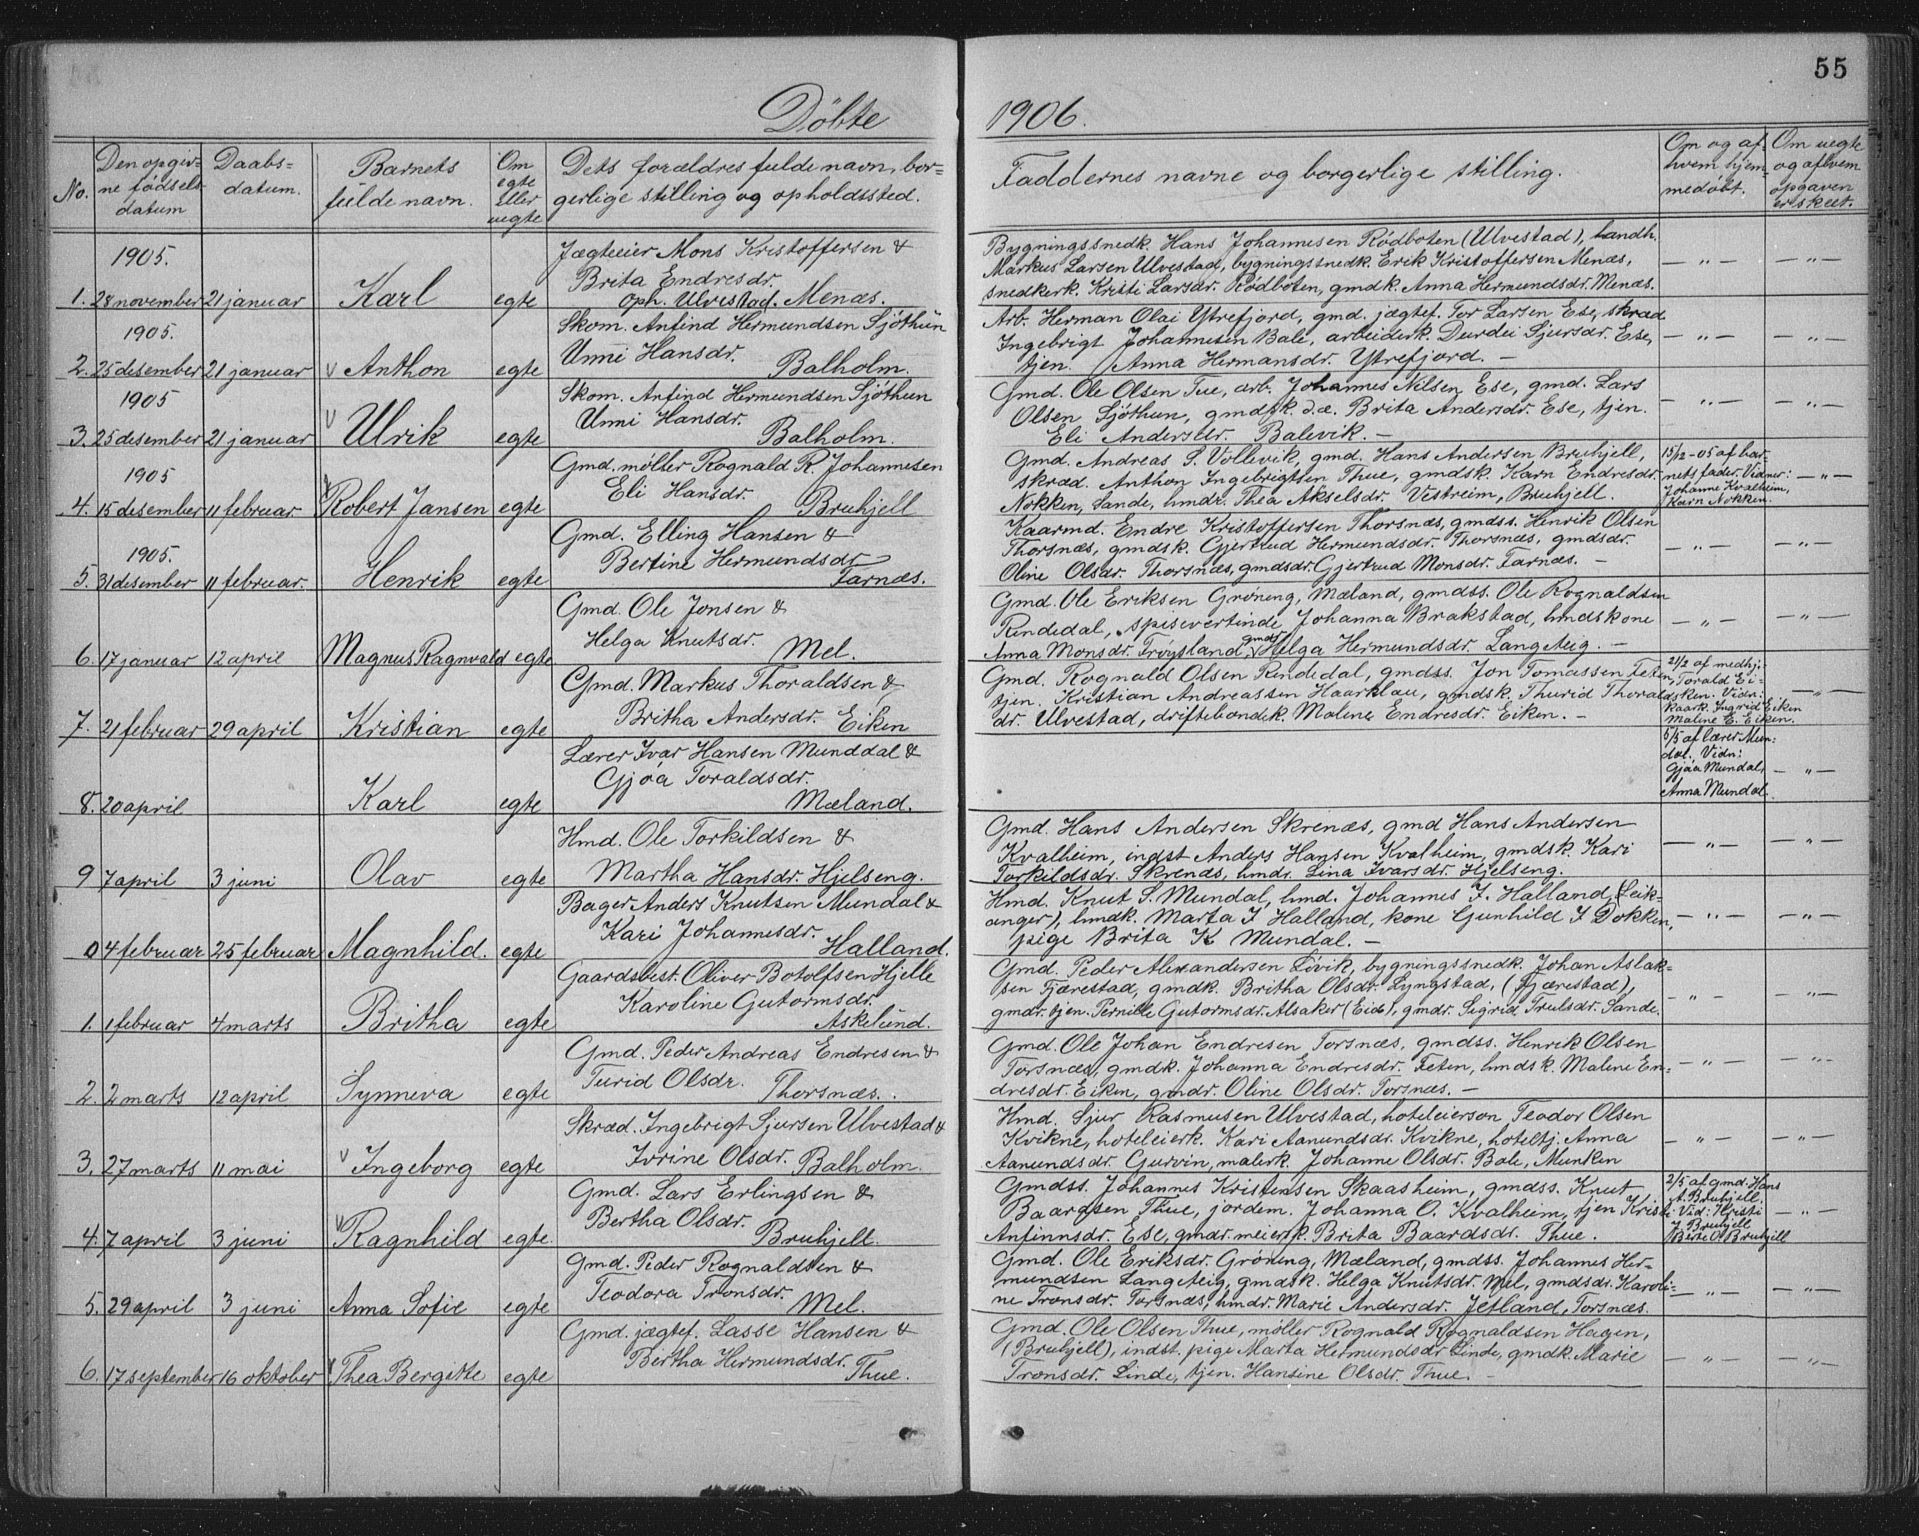 55
Döbte 1906.
No.
Den opgiv-
ne fødsels-
datum
Daabs-
datum.
Barnets
fulde navn.
Om
egte
eller
uegte
Dets forældres fulde navn, bor-
gerlige stilling og opholdssted.
Faddernes navne og borgerlige stilling.
Om og af
hvem hjem-
medøbt.
Om uegte
og af hvem
opgaven
er skeet.
1905.
1. 28 november 21 januar Karl egte
Jægteeier Mons Kristoffersen &
Brita Endresdr.
oph. Ulvestad. Menæs.
Bygningssnedk. Hans Johannesen Rödboten (Ulvestad), landh.
Markus Larsen Ulvestad, bygningssnedk. Erik Kristoffersen Menæs,
snedkerk. Kristi Larsdr. Rödboten, gmdk. Anna Hermundsdr. Menæs.
— " — — " —
1905.
2. 25 desember 21 januar v Anthon egte
Skom. Anfind Hermundsen Sjöthun
Unni Hansdr.
Balholm.
Arb. Herman Olai Ytrefjord, gmd. jægtef. Tor Larsen Ese, skræd
Ingebrigt Johannesen Bale, arbeiderk. Durdei Sjursdr. Ese,
tjen. Anna Hermansdr. Ytrefjord. —
— " — — " —
1905
3. 25 desember 21 januar v Ulrik egte
Skom. Anfind Hermundsen Sjöthun
Unni Hansdr.
Balholm.
Gmd. Ole Olsen Tue, arb. Johannes Nilsen Ese, gmd. Lars
Olsen Sjöthun, gmdsk. d.æ. Brita Andersdr. Ese, tjen.
Eli Andersdr. Balevik. —
— " — — " —
1905
4. 15 desember 11 februar v Robert Jansen egte
Gmd. möller Rognald R. Johannesen
Eli Hansdr.
Bruhjell
Gmd. Andreas S. Vollevik, gmd. Hans Andersen Bruhjell,
skræd. Anthon Ingebrigtsen Thue, gmdsk. Karn Endresdr.
Nokken, Sande, hmdr. Thea Akselsdr. Vestreim, Bruhjell.
15/12-05 af bar-
nets fader. Vidner:
Johanne Kvalheim,
Karn Nokken.
— " —
1905.
5. 31 desember 11 februar. Henrik egte
Gmd. Elling Hansen &
Bertine Hermundsdr.
Farnæs.
Kaarmd. Endre Kristoffersen Thorsnæs, gmdss. Henrik Olsen
Thorsnæs, gmdsk. Gjertrud Hermundsdr. Thorsnæs, gmdsdr.
Oline Olsdr. Thorsnæs, gmdsdr. Gjertrud Monsdr. Farnæs. —
— " — — " —
6. 17 januar 12 april Magnus Ragnvald egte
Gmd. Ole Jonsen &
Helga Knutsdr. Mel.
Gmd. Ole Eriksen Gröning, Mæland, gmdss. Ole Rognaldsen
Rendedal, spisevertinde Johanna Brakstad, hmdskone
Anna Monsdr. Fröysland, gmdr. Helga Hermundsdr. Langeteig. —
— " — — " —
7. 21 februar 29 april Kristian egte
Gmd. Markus Thoraldsen &
Britha Andersdr. Eiken
Gmd. Rognald Olsen Rendedal, gmdss. Jon Tomassen Feten,
tjen. Kristian Andreassen Haarklau, gmdsk. Thurid Thorald-
dr. Ulvestad, driftebondek. Malene Endresdr. Eiken. —
21/2 af medhj.
Torald Ei-
ken. Vidn:
kaark. Ingrid Eiken
Maline E. Eiken.
— " —
8. 20 april Karl egte
Lærer Ivar Hansen Munddal &
Gjöa Toraldsdr.
Mæland.
5/5 af lærer Mun-
dal. Vidn:
Gjöa Mundal,
Anna Mundal.
— " —
9 7 april 3 juni Olav egte
Hmd. Ole Torkildsen &
Martha Hansdr. Hjelseng.
Gmd. Hans Andersen Skrenæs, gmd Hans Andersen
Kvalheim, indst Anders Hansen Kvalheim, gmdsk. Kari
Torkildsdr. Skrenæs, hmdr. Lina Ivarsdr. Hjelseng.
— " — — " —
0 4 februar 25 februar Magnhild. egte
Bager Anders Knutsen Mundal &
Kari Johannesdr.
Halland.
Hmd. Knut S. Mundal, hmd. Johannes J. Halland, (Leik-
anger), hmdk. Marta J Halland, kone Gunhild J Dokken,
pige Brita K Mundal. —
— " — — " —
1. 1 februar 4 marts Britha egte
Gaardsbest. Oliver Botolfsen Hjelle
Karoline Gutormsdr.
Askelund.
Gmd. Peder Alexandersen Lövik, bygningssnedk. Johan Aslak-
sen Fjærestad, gmdk. Britha Olsdr. Lyngstad, (Fjærestad),
gmdr. tjen. Pernille Gutormsdr. Alsaker (Eide), gmdr. Sigrid Trulsdr. Sande.
— " — — " —
2. 2 marts 12 april Synneva egte
Gmd. Peder Andreas Endresen &
Turid Olsdr. Thorsnæs.
Gmd. Ole Johan Endresen Torsnæs, gmdss. Henrik Olsen
Torsnæs, gmdk. Johanna Endresdr. Feten, hmdsk. Malene En-
dresdr. Eiken, gmdr. Oline Olsdr. Torsnæs. —
— " — — " —
3. 27 marts 11 mai v Ingeborg egte
Skræd. Ingebrigt Sjursen Ulvestad &
Ivrine Olsdr. Balholm.
Hmd. Sjur Rasmusen Ulvestad, hoteleierson Teodor Olsen
Kvikne, hoteleierk. Kari Aamundsdr. Kvikne, hoteltj. Anna
Aamundsdr. Gurvin, malerk. Johanne Olsdr. Bale, Munken
— " — — " —
4. 7 april 3 juni v Ragnhild egte
Gmd. Lars Erlingsen &
Bertha Olsdr.
Bruhjell.
Gmdss. Johannes Kristensen Skaasheim, gmdss. Knut
Baardsen Thue, jordem. Johanna O. Kvalheim, tjen Kristi
Anfinnsdr. Ese, gmdr. meierk. Brita Baardsdr. Thue.
2/5 af gmd. Hans
A. Bruhjell.
Vid: Kristi
J Bruhjell
Berte O Bruhjell
— " —
5. 29 april 3 juni Anna Sofie egte
Gmd. Peder Rognaldsen &
Teodora Tronsdr.
Mel.
Gmd. Ole Eriksdr. Gröning, Mæland, gmdss. Johannes Her-
mundsen Langeteig, gmdsk. Helga Knutsdr. Mel, gmdsdr. Karoli-
ne Tronsdr. Torsnæs, hmdr. Marie Andersdr. Jetland, Torsnæs.
— " — — " —
6. 17 september 16 oktober Thea Bergitte egte
Gmd. jægtef. Lasse Hansen &
Bertha Hermundsdr.
Thue.
Gmd. Ole Olsen Thue, møller Rognald Rognaldsen Hagen,
(Bruhjell), indst. pige Marta Hermundsdr Linde, gmdk. Marie
Tronsdr. Linde, tjen. Hansine Olsdr. Thue. —
— " — — " —